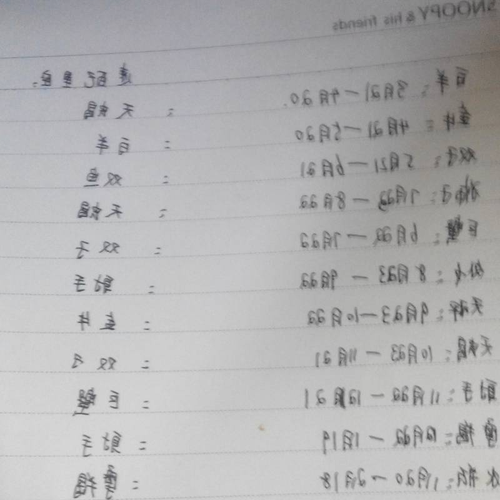 SNOOPY & his friends
白羊:3月21—4月20. :天蝎
金牛:4月21—5月20 :白羊
双子:5月21—6月21 :双鱼
狮子:7月23—8月22 :天蝎
巨蟹:6月22—7月22 :双子
处女:8月23—9月22 :射手
天秤:9月23—10月22 :金牛
天蝎:10月23—11月21 :双子
射手:11月22—12月21 :巨蟹
魔羯:12月22—1月19 :射手
水瓶:1月20—2月18 :魔羯